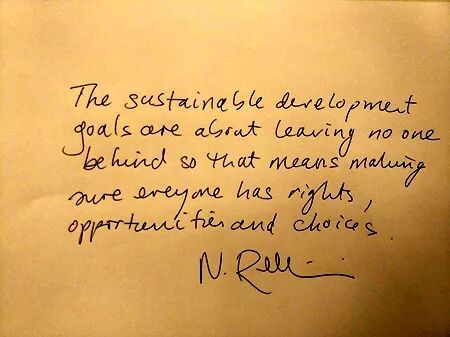 The sustainable development
goals are about leaving no one
behind so that means making
sure ereyone has rights,
opportunities and choices.
N.